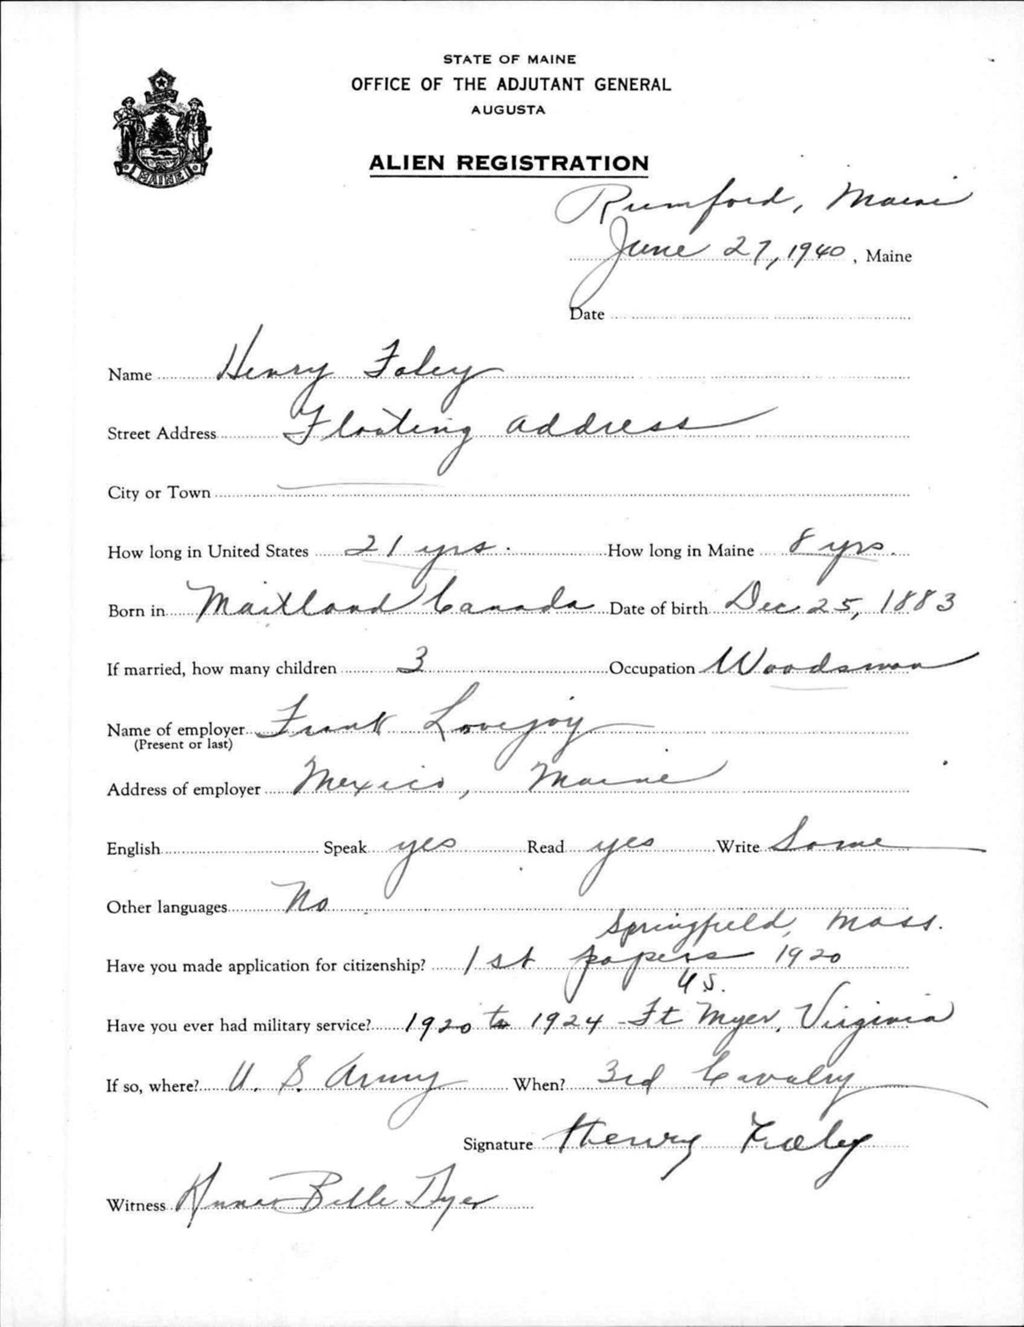 STATE OF MAINE
OFFICE OF THE ADJUTANT GENERAL
AUGUSTA
MAINE
ALIEN REGISTRATION
Rumford, Maine
June 27, 1940, Maine
Date
Name Henry Foley
Street Address Floating address
City or Town
How long in United States 21 yrs. How long in Maine 8 yrs.
Born in Maitland Canada Date of birth Dec. 25, 1883
If married, how many children 3 Occupation Woodsman
Name of employer Frank Lovejoy
(Present or last)
Address of employer Mexico, Maine
English Speak yes Read yes Write Some
Other languages No
Springfield, Mass.
Have you made application for citizenship? 1st papers 1920
U.S.
Have you ever had military service? 1920 to 1924 Ft Myer, Virginia
If so, where? U. S. Army When? 3rd Cavalry
Signature Henry Foley
Witness Anna Belle Dyer